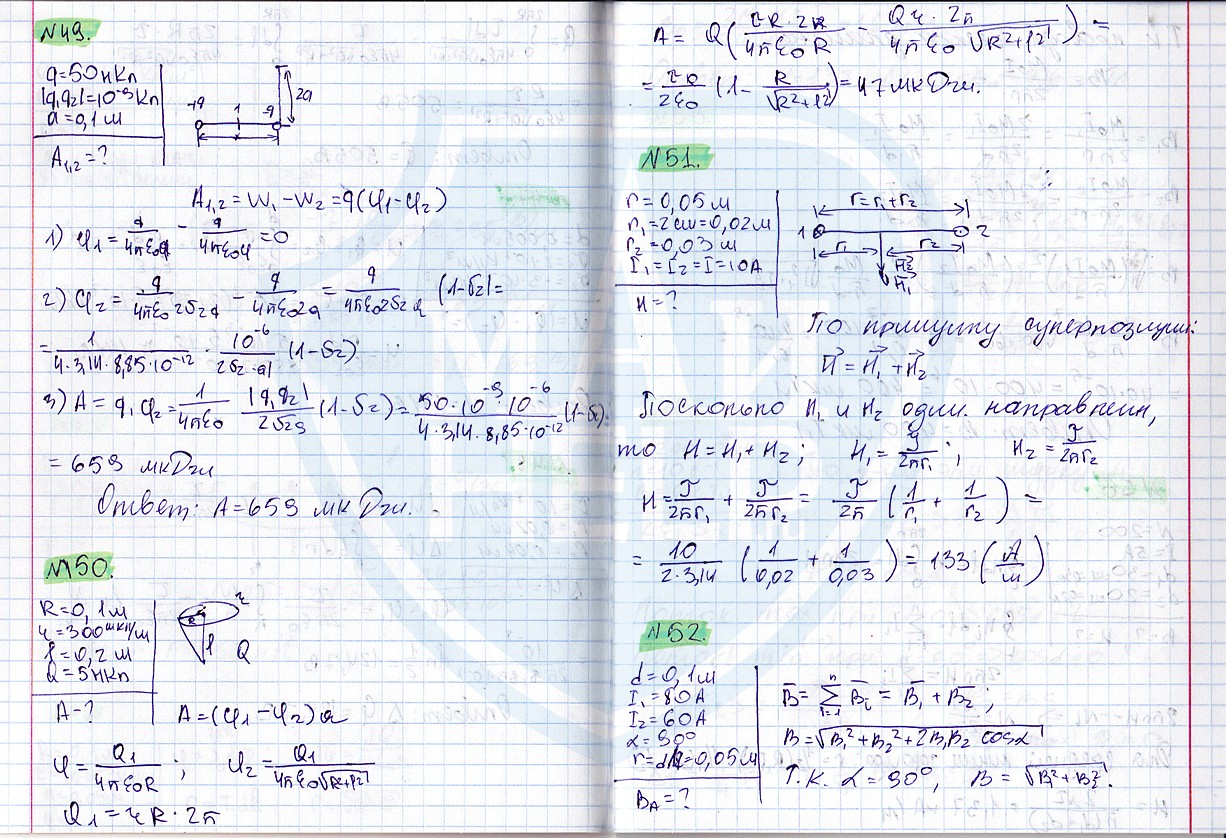 №49.
q=50нКл
|q,q₂|=10⁻⁹Кл
a=0,1 м
A₁,₂=?
+q 1 -q 2a
A₁,₂ = W₁-W₂ = q(φ₁-φ₂)
1) φ₁ = q/4πε₀a - q/4πε₀a = 0
2) φ₂ = q/4πε₀2√2a - q/4πε₀2a = q/4πε₀2√2a (1-√2)=
= 1/4·3,14·8,85·10⁻¹² · 10⁻⁶/2√2·a (1-√2)
3) A = q, φ₂ = 1/4πε₀ |q,q₂|/2√2a (1-√2) = 50·10⁻⁹·10⁻⁶/4·3,14·8,85·10⁻¹² (1-√2)=
= 659 мкДж
Ответ: A=659 мкДж.
№50.
R=0,1м
τ=300мкКл/м
l=0,2 м
Q=5нКл
A-?
τ R l Q
A=(φ₁-φ₂)Q
φ = Q₁/4πε₀R ; φ₂ = Q₁/4πε₀√R²+l²
Q₁ = τR·2π
A = Q(τR·2π/4πε₀R - Qτ·2π/4πε₀√R²+l²) =
= τR/2ε₀ (1- R/√R²+l²) = 47 мкДж.
№51.
r=0,05 м
r₁=2см=0,02м
r₂=0,03 м
I₁=I₂=I=10А
H=?
r=r₁+r₂
1 2
r₁ r₂
H₂
H₁
По принципу суперпозиции:
H = H₁ + H₂
Поскольку H₁ и H₂ один. направлен,
то H=H₁+H₂ ; H₁ = J/2πr₁ ; H₂ = J/2πr₂
H = J/2πr₁ + J/2πr₂ = J/2π (1/r₁ + 1/r₂) =
= 10/2·3,14 (1/0,02 + 1/0,03) = 133 (А/м)
№52.
d=0,1м
I₁=80А
I₂=60А
α=90°
r=d/2=0,05м
B_A=?
B = Σ Bᵢ = B₁ + B₂ ;
B=√B₁²+B₂²+2B₁B₂ cosα
Т.к. α=90°, B = √B₁²+B₂².